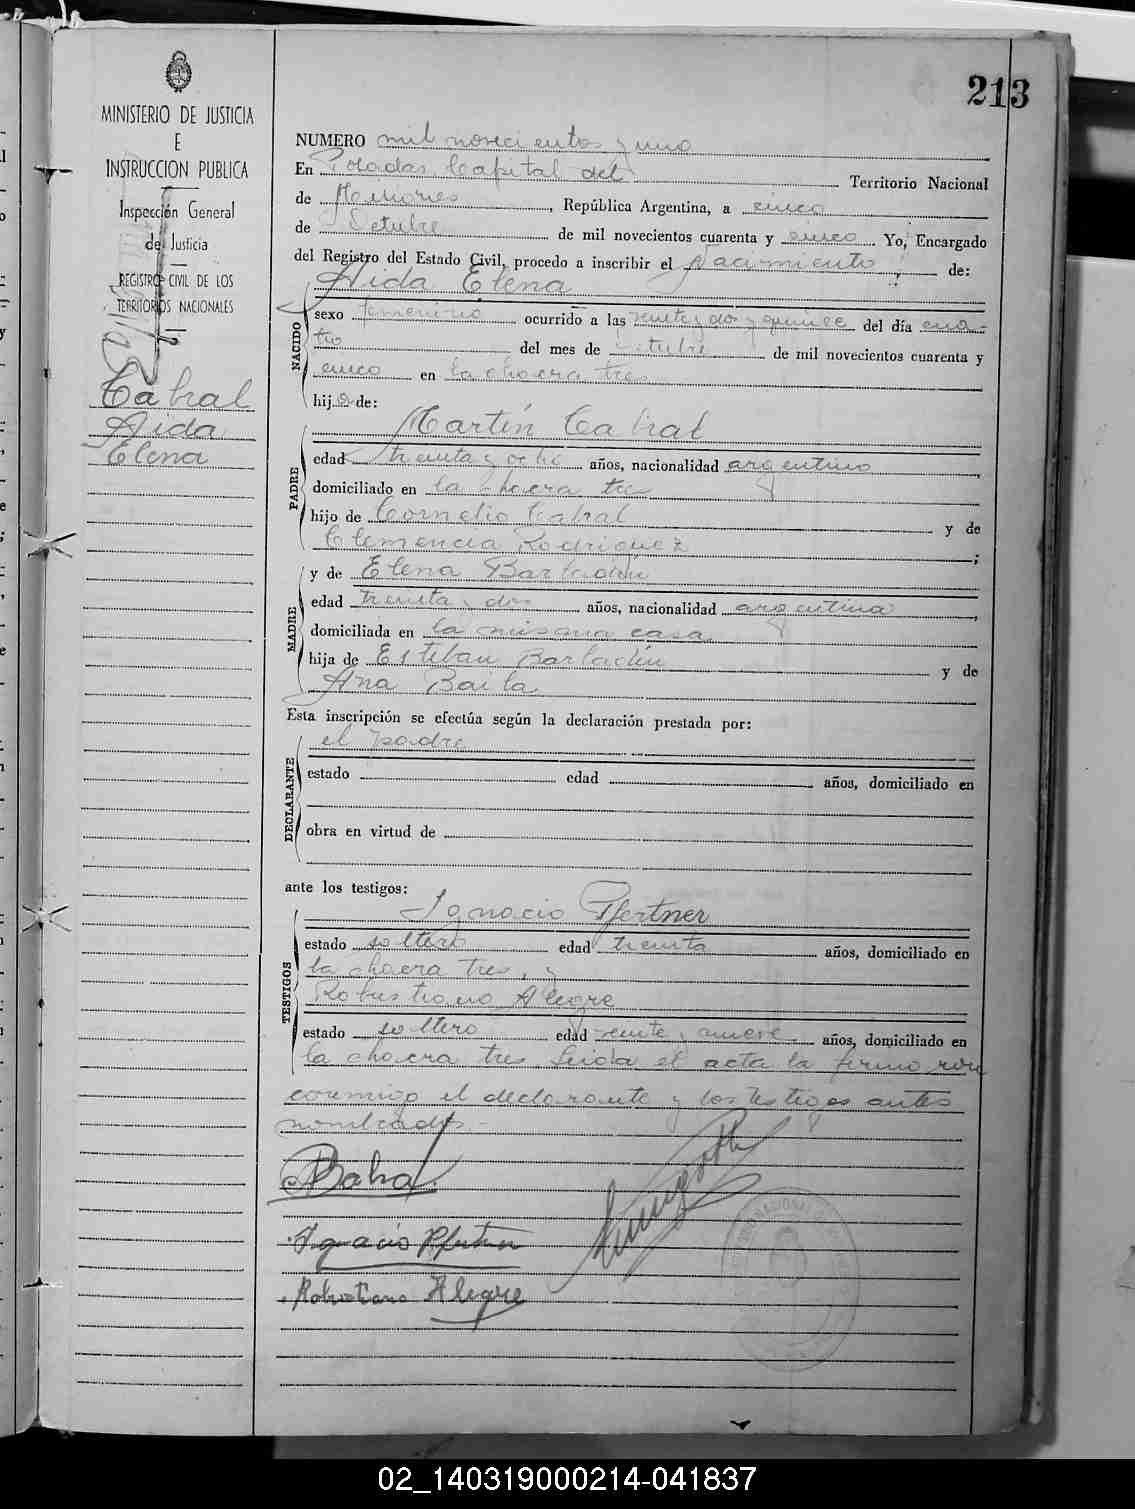 213
MINISTERIO DE JUSTICIA
E
INSTRUCCION PUBLICA
Inspección General
de Justicia
REGISTRO CIVIL DE LOS
TERRITORIOS NACIONALES
Cabral
Aida
Elena
NUMERO mil novecientos y uno
En Posadas Capital del Territorio Nacional
de Misiones, República Argentina, a cinco
de Octubre de mil novecientos cuarenta y cinco Yo, Encargado
del Registro del Estado Civil, procedo a inscribir el Nacimiento de:
Aida Elena
NACIDO
sexo femenino ocurrido a las veinte y dos y quince del día cua-
tro del mes de Octubre de mil novecientos cuarenta y
cinco en la chacra tres
hija de:
Martín Cabral
PADRE
edad treinta y ocho años, nacionalidad argentino
domiciliado en la chacra tres
hijo de Cornelio Cabral y de
Clemencia Rodriguez ;
y de Elena
MADRE
edad treinta y dos años, nacionalidad argentina
domiciliada en la misma casa
hija de Esteban y de
Ana
Esta inscripción se efectúa según la declaración prestada por:
el padre
DECLARANTE
estado edad años, domiciliado en
obra en virtud de
ante los testigos:
Ignacio Pfertner
TESTIGOS
estado soltero edad treinta años, domiciliado en
la chacra tres, y
Robustiano Alegre
estado soltero edad veinte y nueve años, domiciliado en
la chacra tres. Leida el acta la firmaron
conmigo el declarante y los testigos antes
nombrados.-
Ignacio Pfertner
Robustiano Alegre
02_140319000214-041837